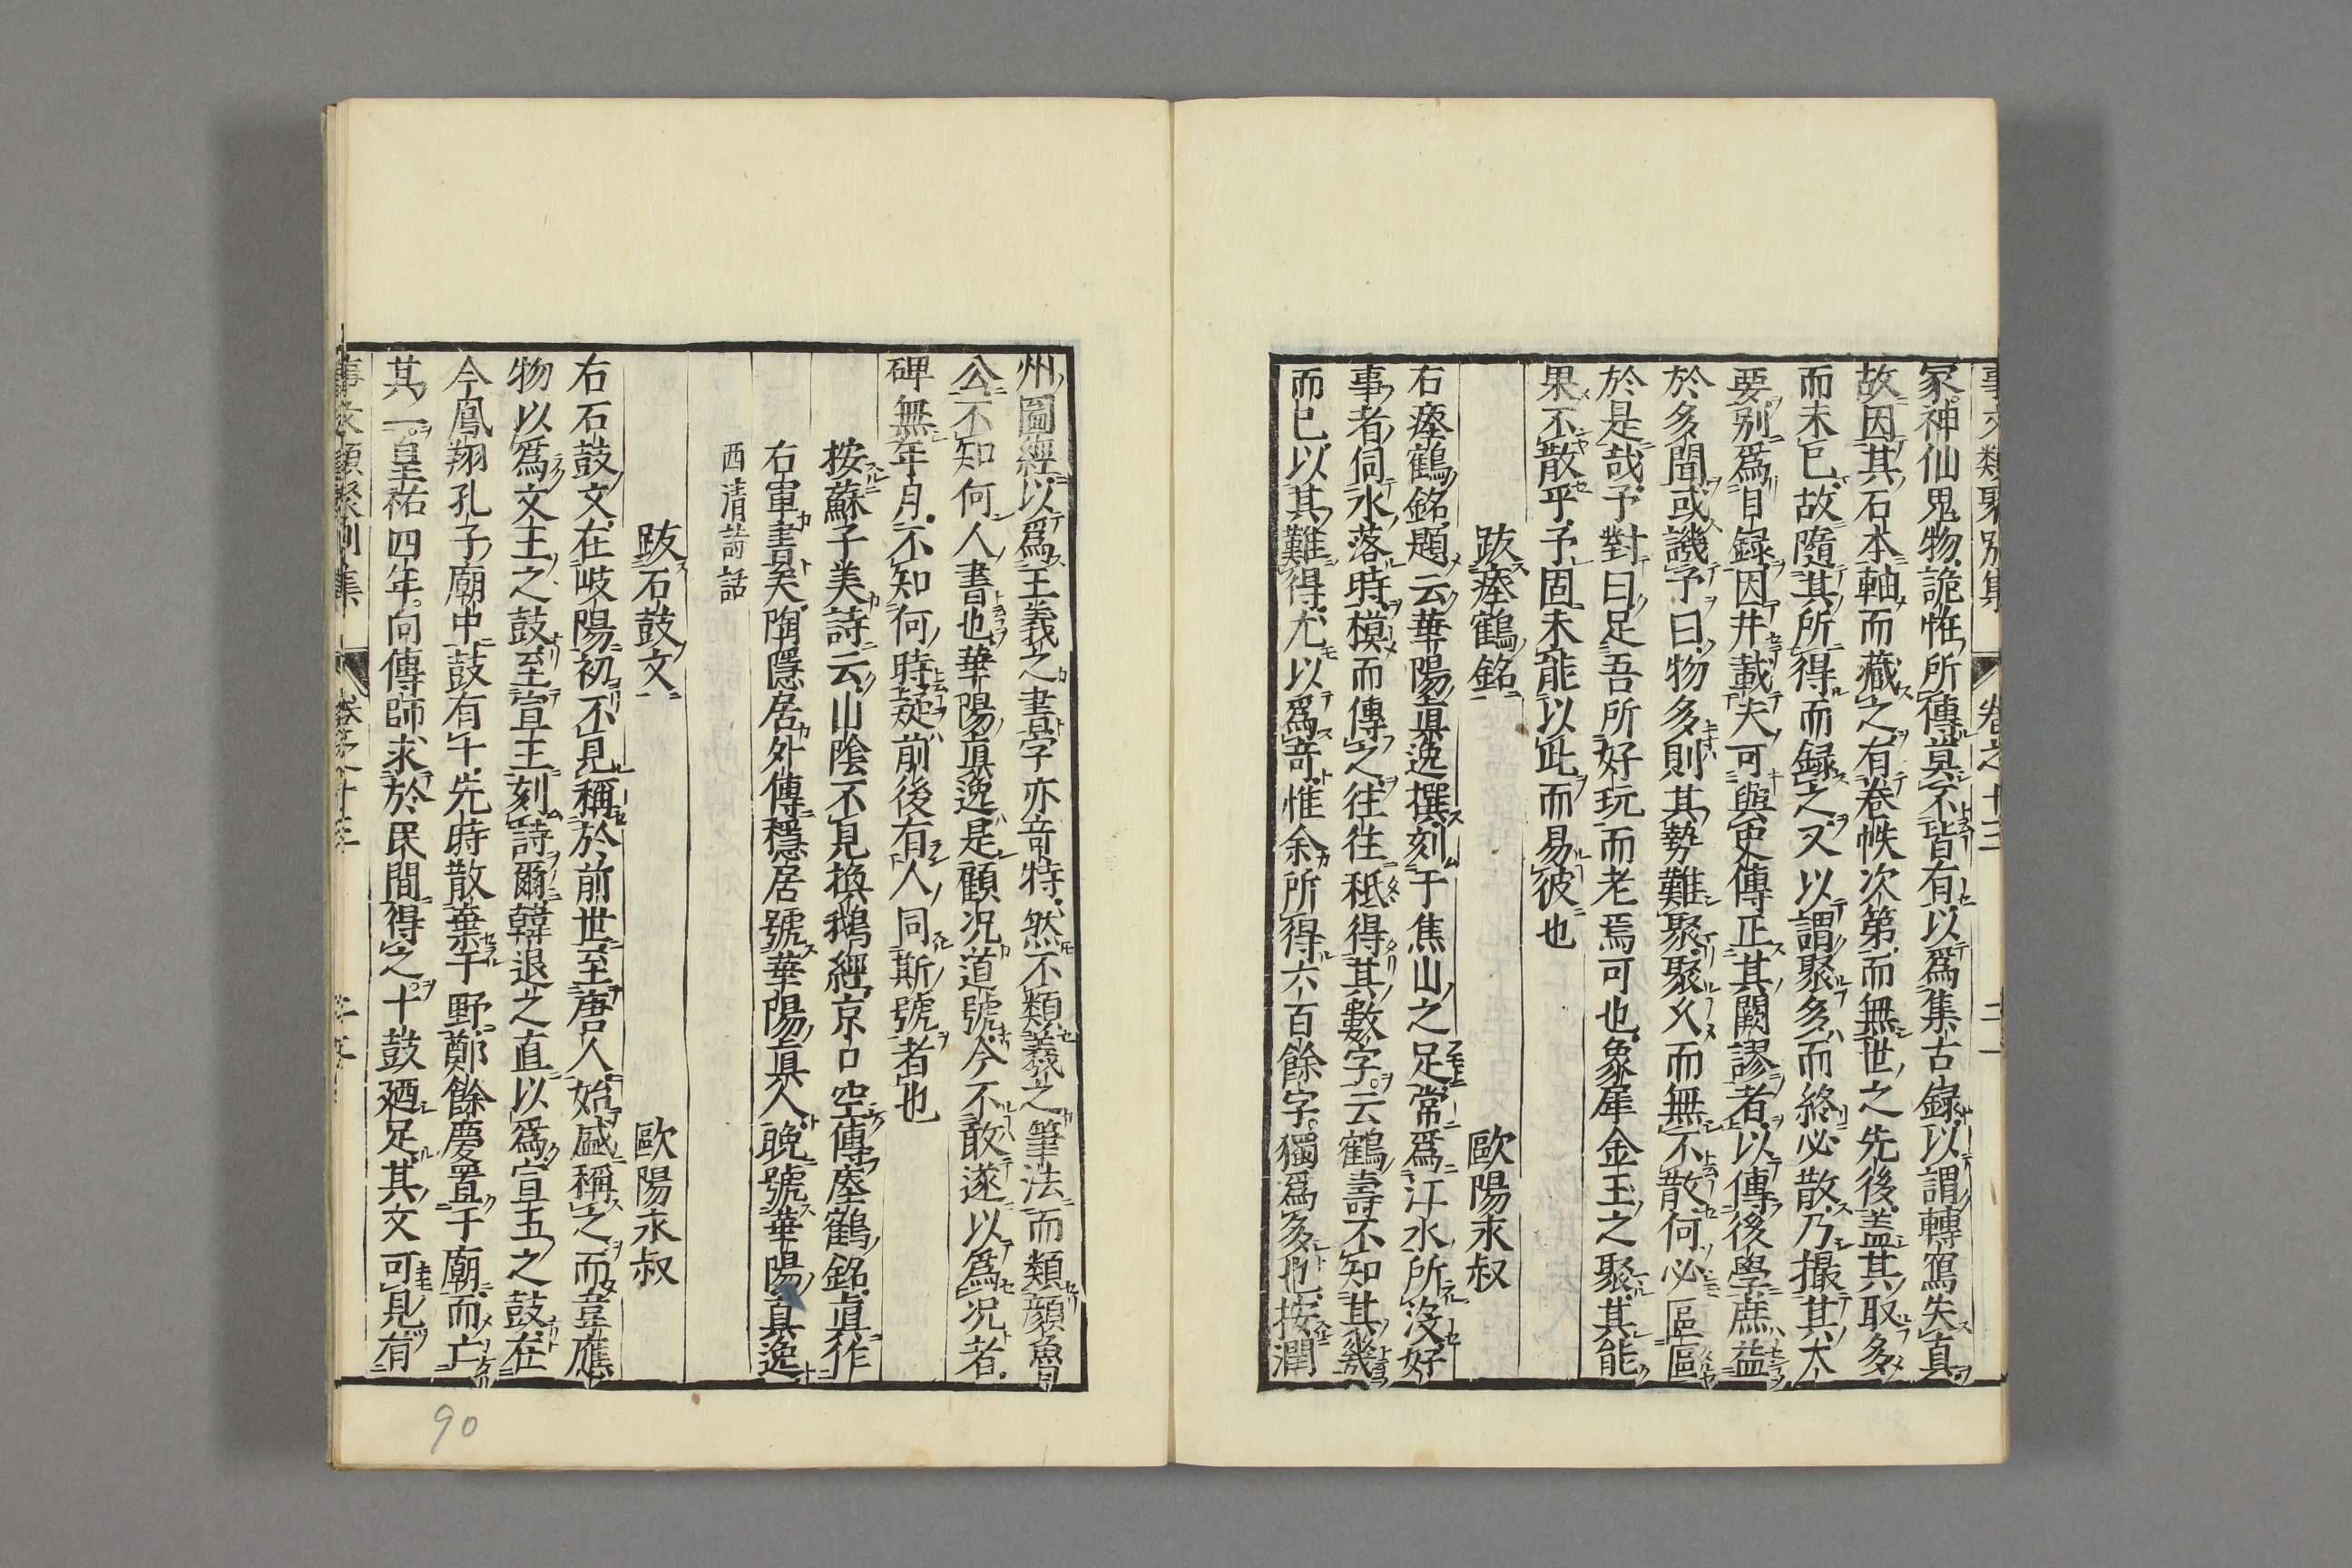 事文類聚別集 卷之十三 二十一
家神仙鬼物詭恠所傳莫不皆有以爲集古録以謂轉寫失真
故因其石本軸而藏之有卷帙次第而無世之先後盖其取多
而未已故隨其所得而録之又以謂聚多而終必散乃撮其大
要別爲目録因并載夫可與史傳正其闕謬者以傳後學庶益
於多聞或譏予曰物多則其勢難聚聚久而無不散何必區區
於是哉予對曰足吾所好玩而老焉可也象犀金玉之聚其能
果不散乎予固未能以此而易彼也
跋瘞鶴銘 歐陽永叔
右瘞鶴銘題云華陽真逸撰刻于焦山之足常爲江水所沒好
事者伺水落時模而傳之往往秪得其數字云鶴壽不知其幾
而已以其難得尤以爲奇惟余所得六百餘字獨爲多也按潤
州圖經以爲王羲之書字亦竒特然不類羲之筆法而類顔魯
公不知何人書也華陽真逸是顧况道號今不敢遂以爲况者
碑無年月不知何時疑前後有人同斯號者也
按蘇子美詩云山陰不見換鵝經京口空傳瘞鶴銘真作
右軍書矣隋隱居外傳隱居號華陽真人晩號華陽真逸
西清詩話
跋石鼓文 歐陽永叔
右石鼓文在岐陽初不見稱於前世至唐人始盛稱之而韋應
物以爲文王之鼓至宣王刻詩爾韓退之直以爲宣王之鼓在
今鳳翔孔子廟中鼓有十先時散棄于野鄭餘慶置于廟而亡
其一皇祐四年向傳師求於民間得之十鼓廼足其文可見有
事文類聚別集 卷之十三